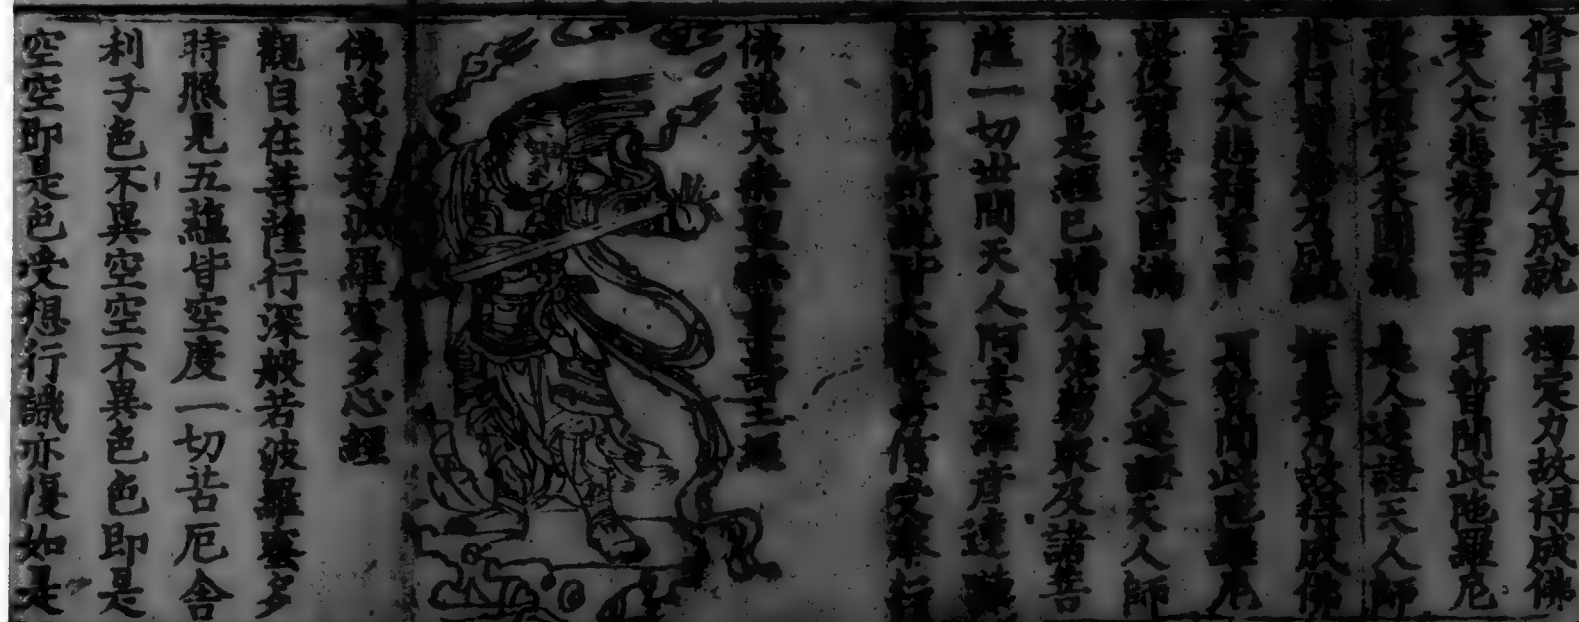 修行禪定力成就　禪定力故得成佛
若入大悲精室中　耳暫聞此陁羅尼
設使禪定未圓滿　是人速證天人師
修行智慧力成就　智慧力故得成佛
若入大悲精室中　耳暫聞此陁羅尼
設使智慧未圓滿　是人速證天人師
佛説是經已諸大苾芻衆及諸菩
薩一切世間天人阿素囉彦達嚩
等聞佛所説皆大歡喜信受奉行
佛説大乘聖無量壽王經
佛説般若波羅蜜多心經
觀自在菩薩行深般若波羅蜜多
時照見五蘊皆空度一切苦厄舍
利子色不異空空不異色色即是
空空即是色受想行識亦復如是